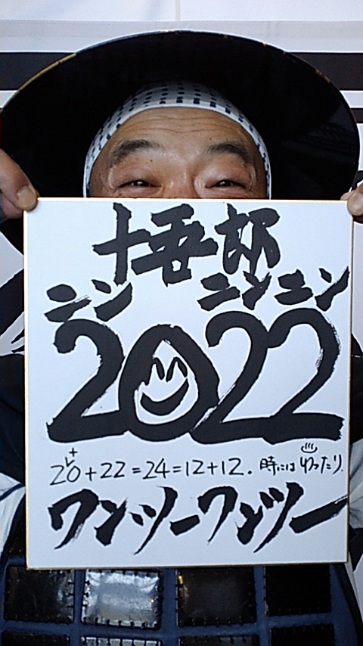 十吾郎
ニン ニンニン
2022
2+0+22=24=12+12. 時には ♨ゆったり
ワン・ツーワンツー